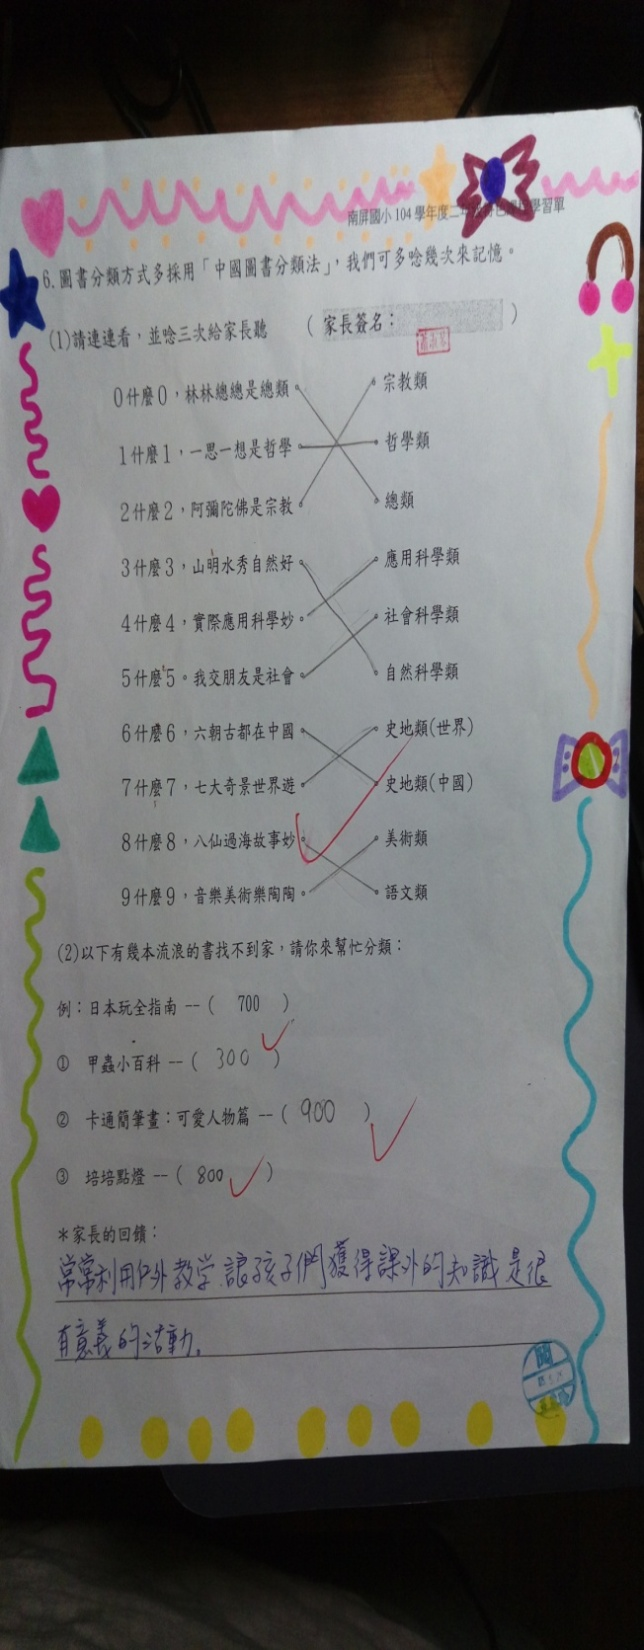 南屏國小 104 學年度二年級特色課程學習單
6.圖書分類方式多採用「中國圖書分類法」，我們可多唸幾次來記憶。
(1)請連連看，並唸三次給家長聽 （家長簽名： ）
0什麼0，林林總總是總類 宗教類
1什麼1，一思一想是哲學 哲學類
2什麼2，阿彌陀佛是宗教 總類
3什麼3，山明水秀自然好 應用科學類
4什麼4，實際應用科學妙。 社會科學類
5什麼5。我交朋友是社會 自然科學類
6什麼6，六朝古都在中國 史地類(世界)
7什麼7，七大奇景世界遊 史地類(中國)
8什麼8，八仙過海故事妙 美術類
9什麼9，音樂美術樂陶陶 語文類
(2)以下有幾本流浪的書找不到家，請你來幫忙分類：
例：日本玩全指南 --( 700 )
① 甲蟲小百科 --( 300 )
② 卡通簡筆畫：可愛人物篇 --( 900 )
③ 培培點燈 --( 800 )
*家長的回饋：
常常利用戶外教学,讓孩子們獲得課外的知識是很
有意義的活動。